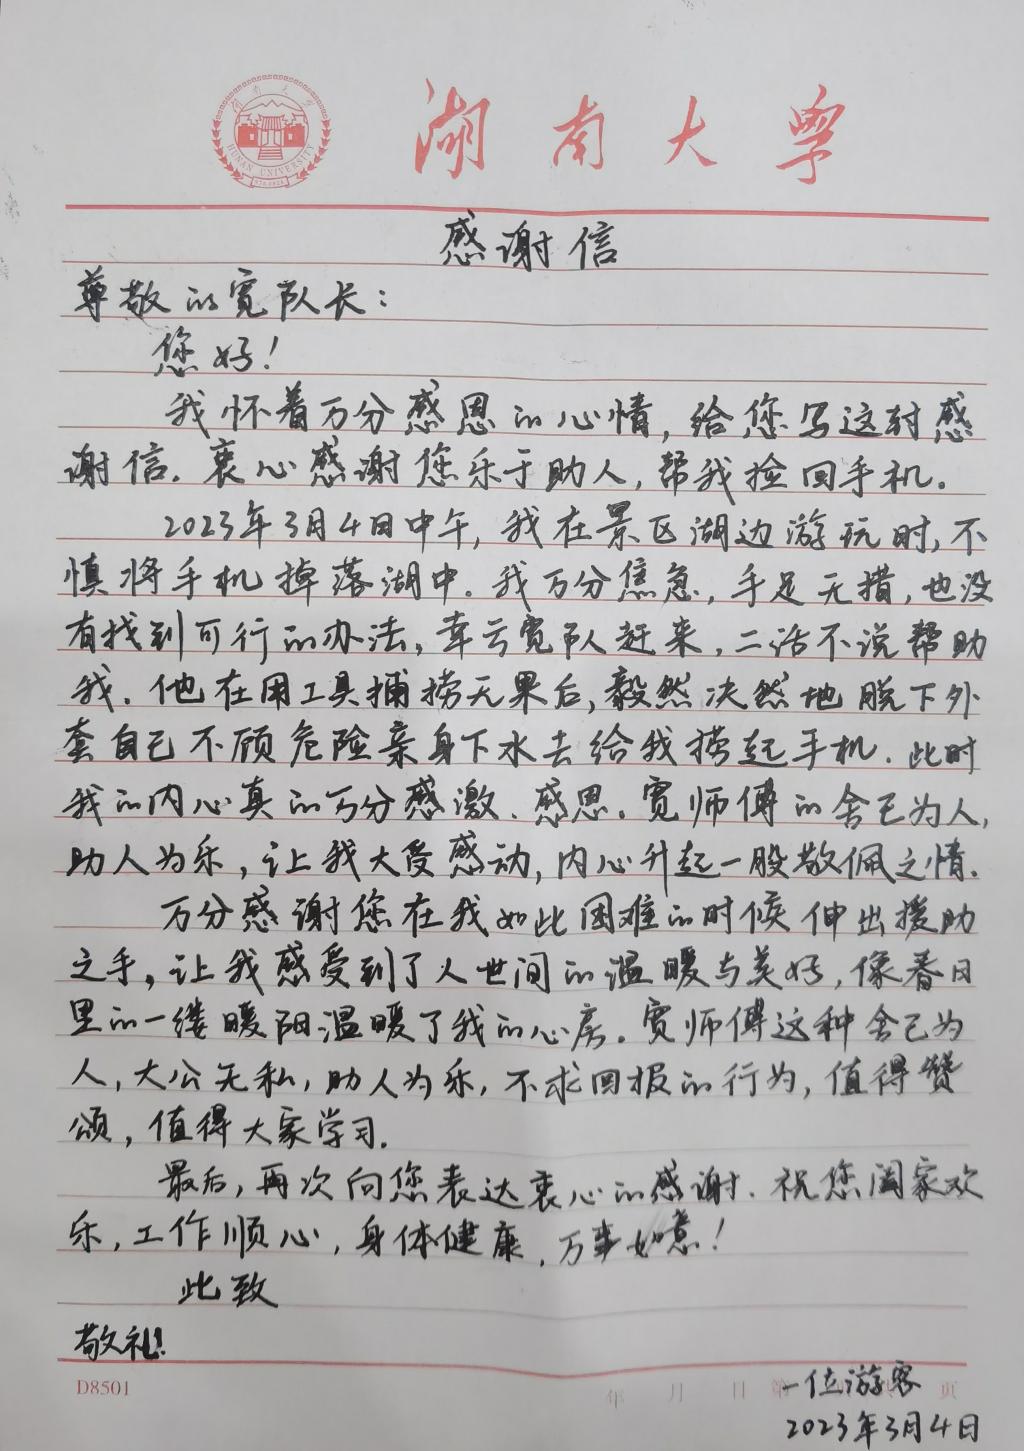 湖南大学
HUNAN UNIVERSITY
感谢信
尊敬的宽队长：
您好！
我怀着万分感恩的心情，给您写这封感
谢信。衷心感谢您乐于助人，帮我捡回手机。
2023年3月4日中午，我在景区湖边游玩时，不
慎将手机掉落湖中。我万分焦急，手足无措，也没
有找到可行的办法，幸云宽队赶来，二话不说帮助
我。他在用工具捕捞无果后，毅然决然地脱下外
套自己不顾危险亲身下水去给我捞起手机。此时
我的内心真的万分感激、感恩。宽师傅的舍己为人，
助人为乐，让我大受感动，内心升起一股敬佩之情。
万分感谢您在我如此困难的时候伸出援助
之手，让我感受到了人世间的温暖与美好，像春日
里的一缕暖阳温暖了我的心房。宽师傅这种舍己为
人，大公无私，助人为乐，不求回报的行为，值得赞
颂，值得大家学习。
最后，再次向您表达衷心的感谢。祝您阖家欢
乐，工作顺心，身体健康，万事如意！
此致
敬礼！
D8501 年 月 日 第 页
一位游客
2023年3月4日